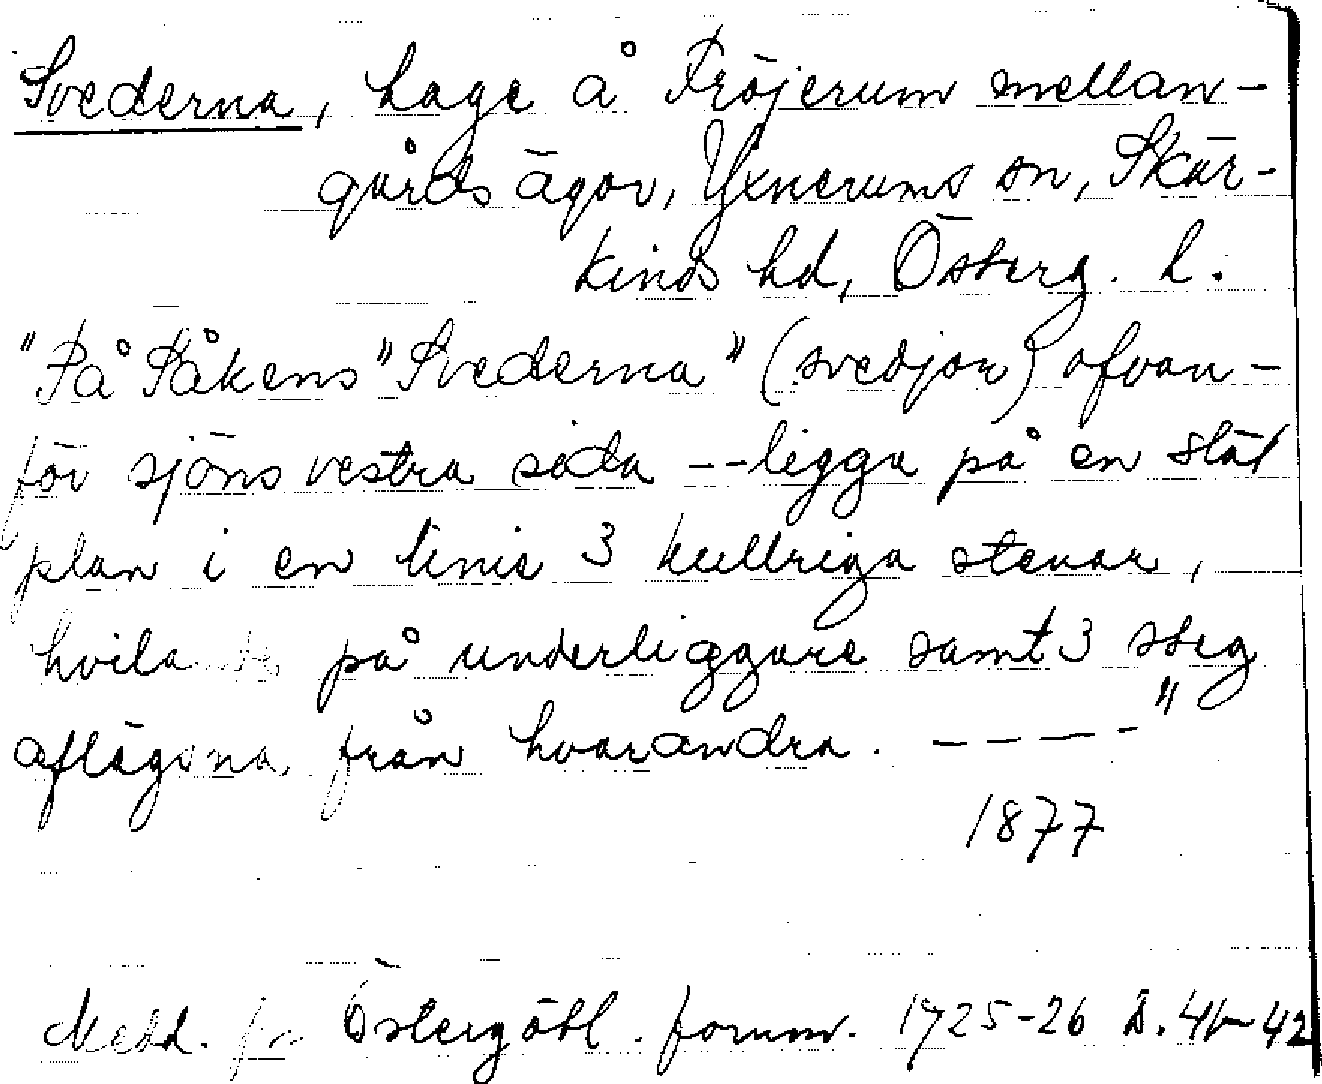 Svederna, hage å Fröjerum mellan-
gårds ägor, Yxnerums sn, Skär-
kinds hd, Österg. L.
"På Påkens "Svederna" (svedjor) ofvan-
för sjöns vestra sida -- ligga på en slät
plan i en linie 3 kullriga stenar,
hvilande på underliggare samt 3 steg
aflägsna från hvarandra. ----"
1877
Medd. fr Östergötl. fornm. 1925-26 S. 41-42